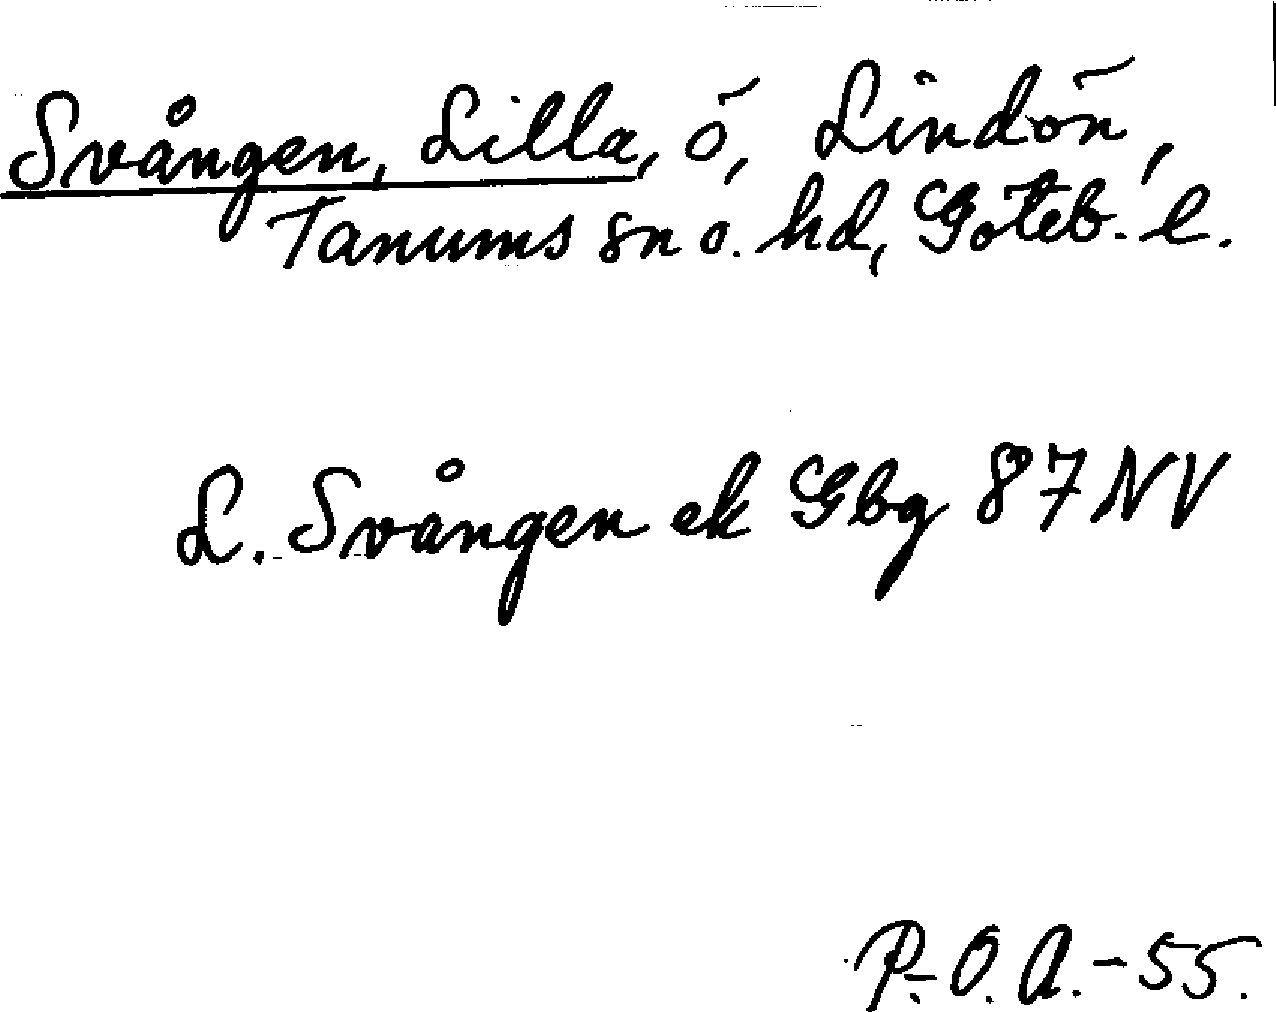 Svången, Lilla, ö, Lindön,
Tanums sn o. hd, Göteb. l.
L. Svången ek Gbg 87 NV
P.-O. A. - 55.